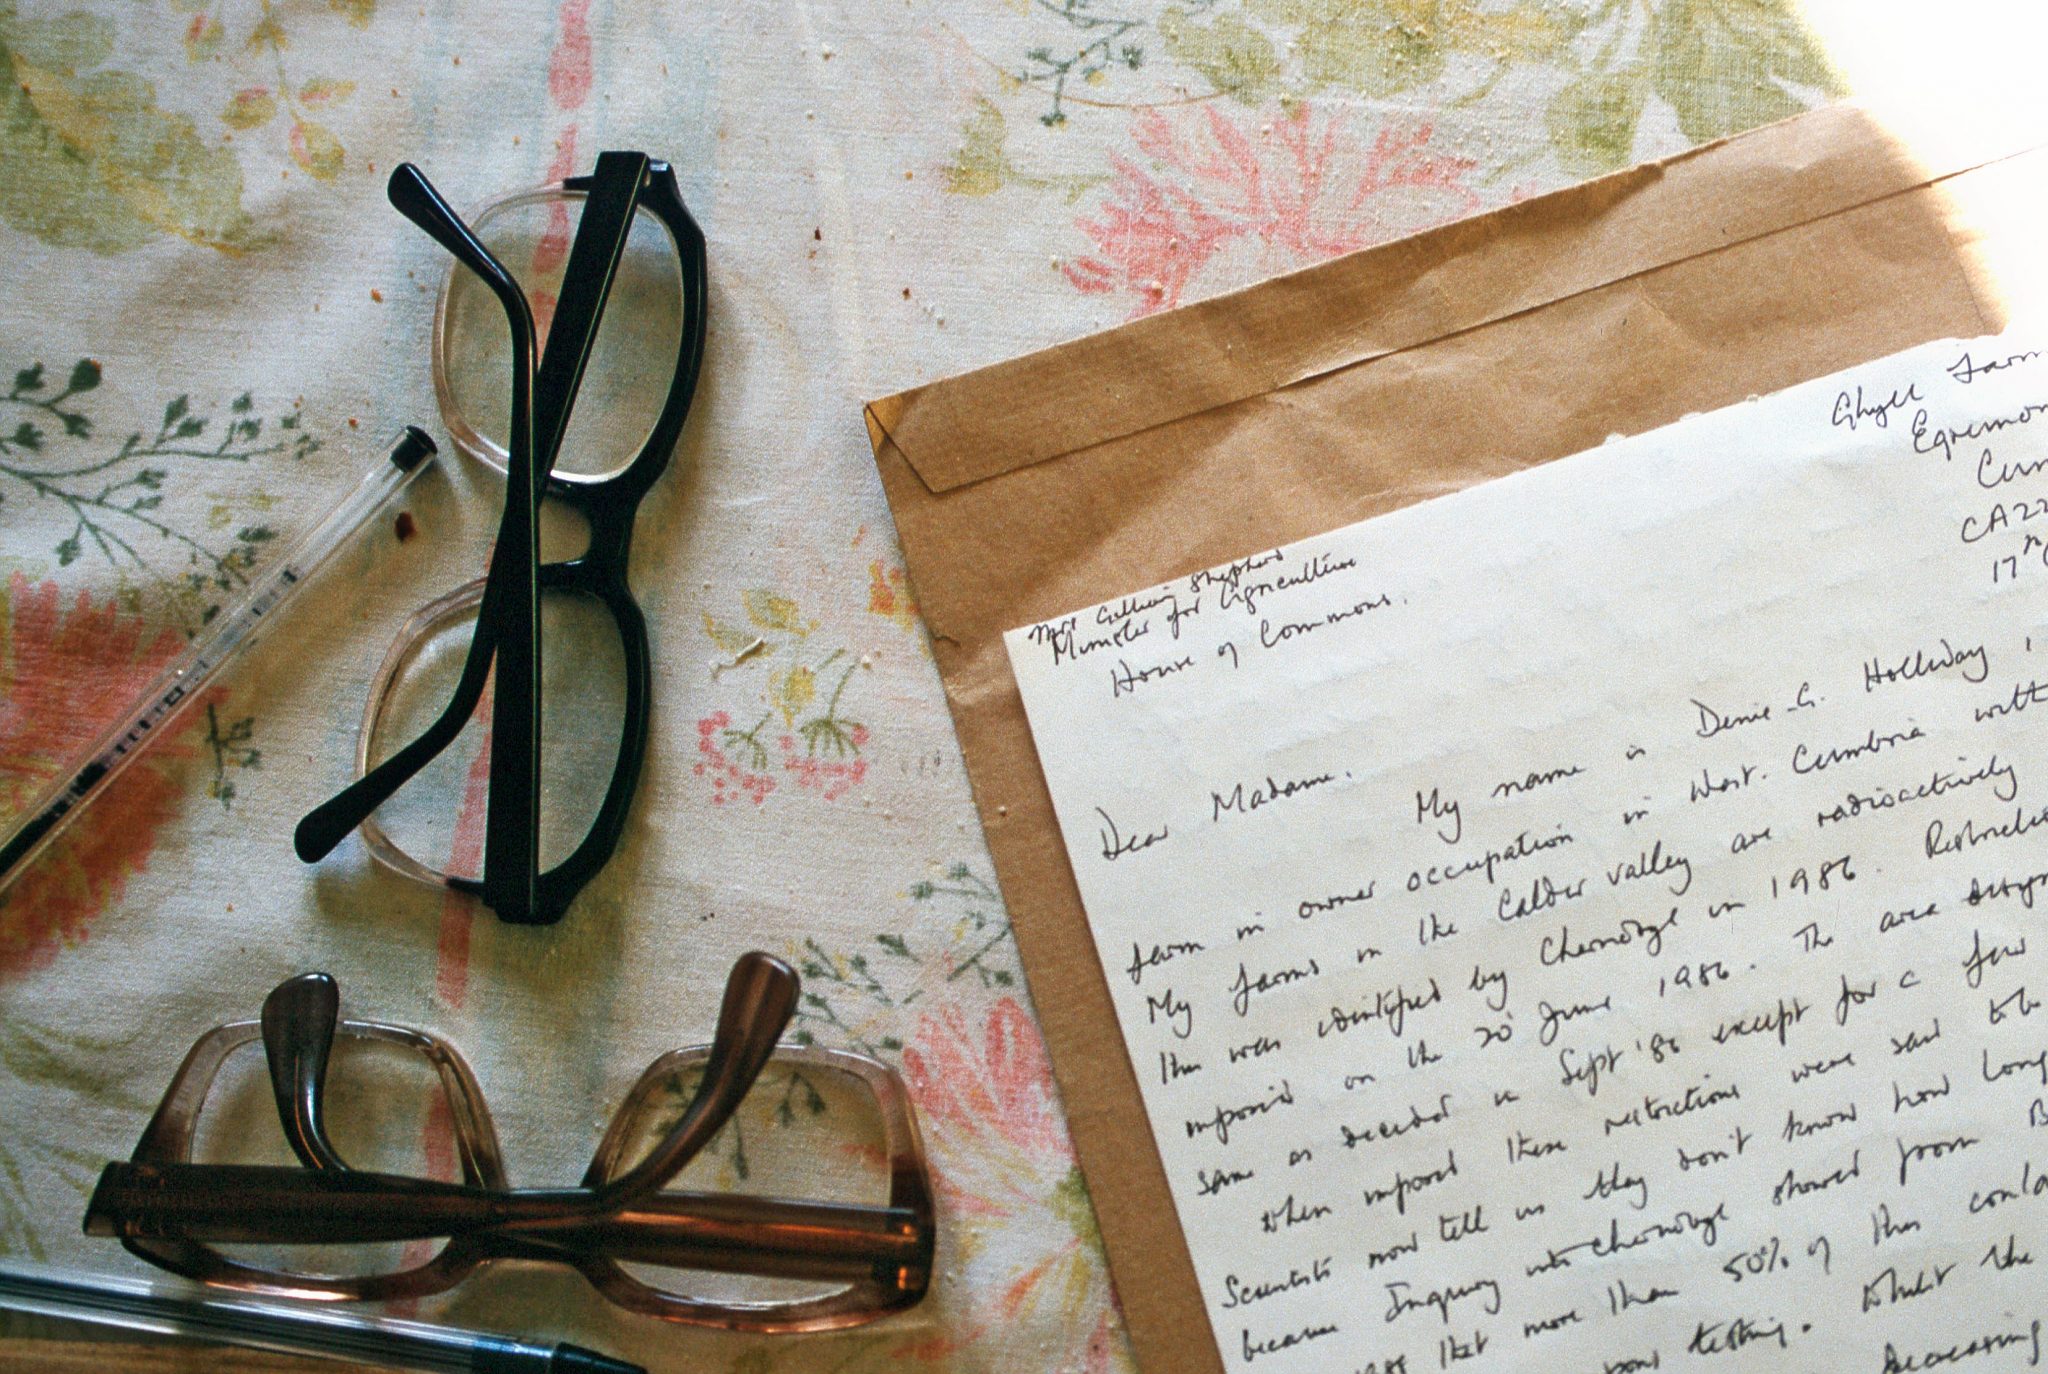 Ghyll Farm
Egremon
Cum
CA22
17th
Mrs Gillian Shepherd
Minister for Agriculture
House of Commons.
Dear Madame.
My name is Denis G. Holliday,
farm in owner occupation in West. Cumbria with
My farms in the Calder valley are radioactively
this was identified by Chernobyl in 1986. Restrictio
imposed on the 20 June 1986. The area
same as decided in Sept '86 except for a few
When imposed these restrictions were said to be
Scientists now tell us they don't know how long
because Inquiry into Chernobyl showed from B
that more than 50% of this conta
testing. Whilst the
decreasing